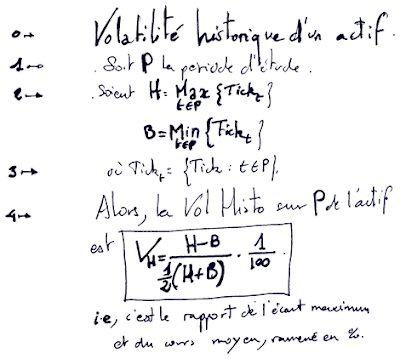 0→ Volatilité historique d'un actif.
1→ . Soit P la période d'étude.
2→ . Soient H = Max_{t∈P} {Tick_t}
B = Min_{t∈P} {Tick_t}
3→ où Tick_t = {Tick : t∈P}.
4→ Alors, la Vol Histo sur P de l'actif
est V_H = (H-B) / (1/2 (H+B)) · 1/100 .
i.e, c'est le rapport de l'écart maximum
et du cours moyen, ramené en %.